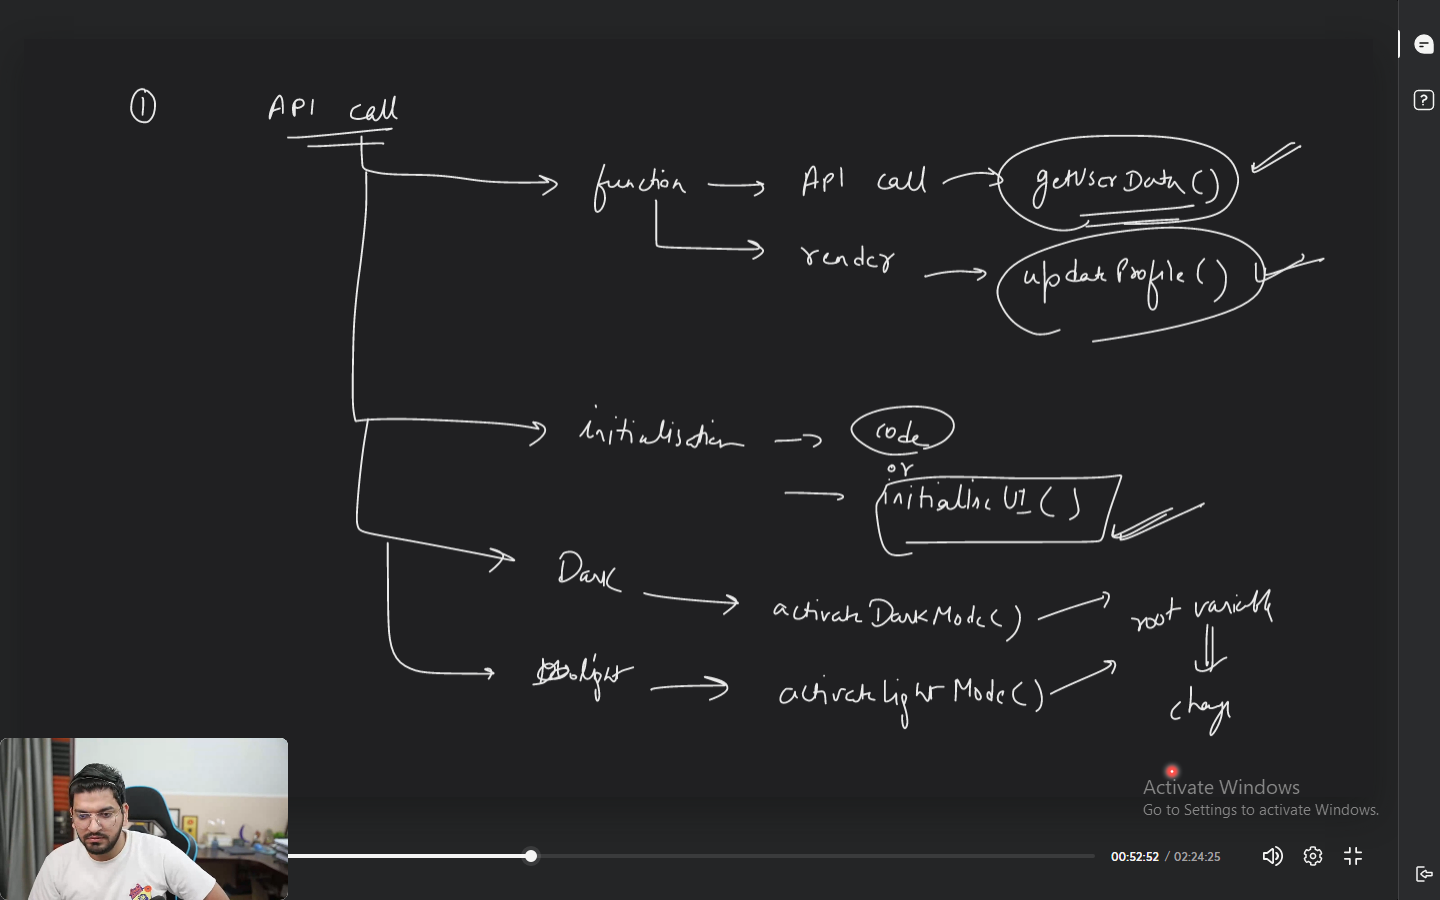 ① API call
function → API call → getUserData()
render → updateProfile()
initialisation → code
or
→ initialise UI()
Dark → activateDarkMode() → root variable
light → activateLightMode() → change
Activate Windows
Go to Settings to activate Windows.
00:52:52 / 02:24:25